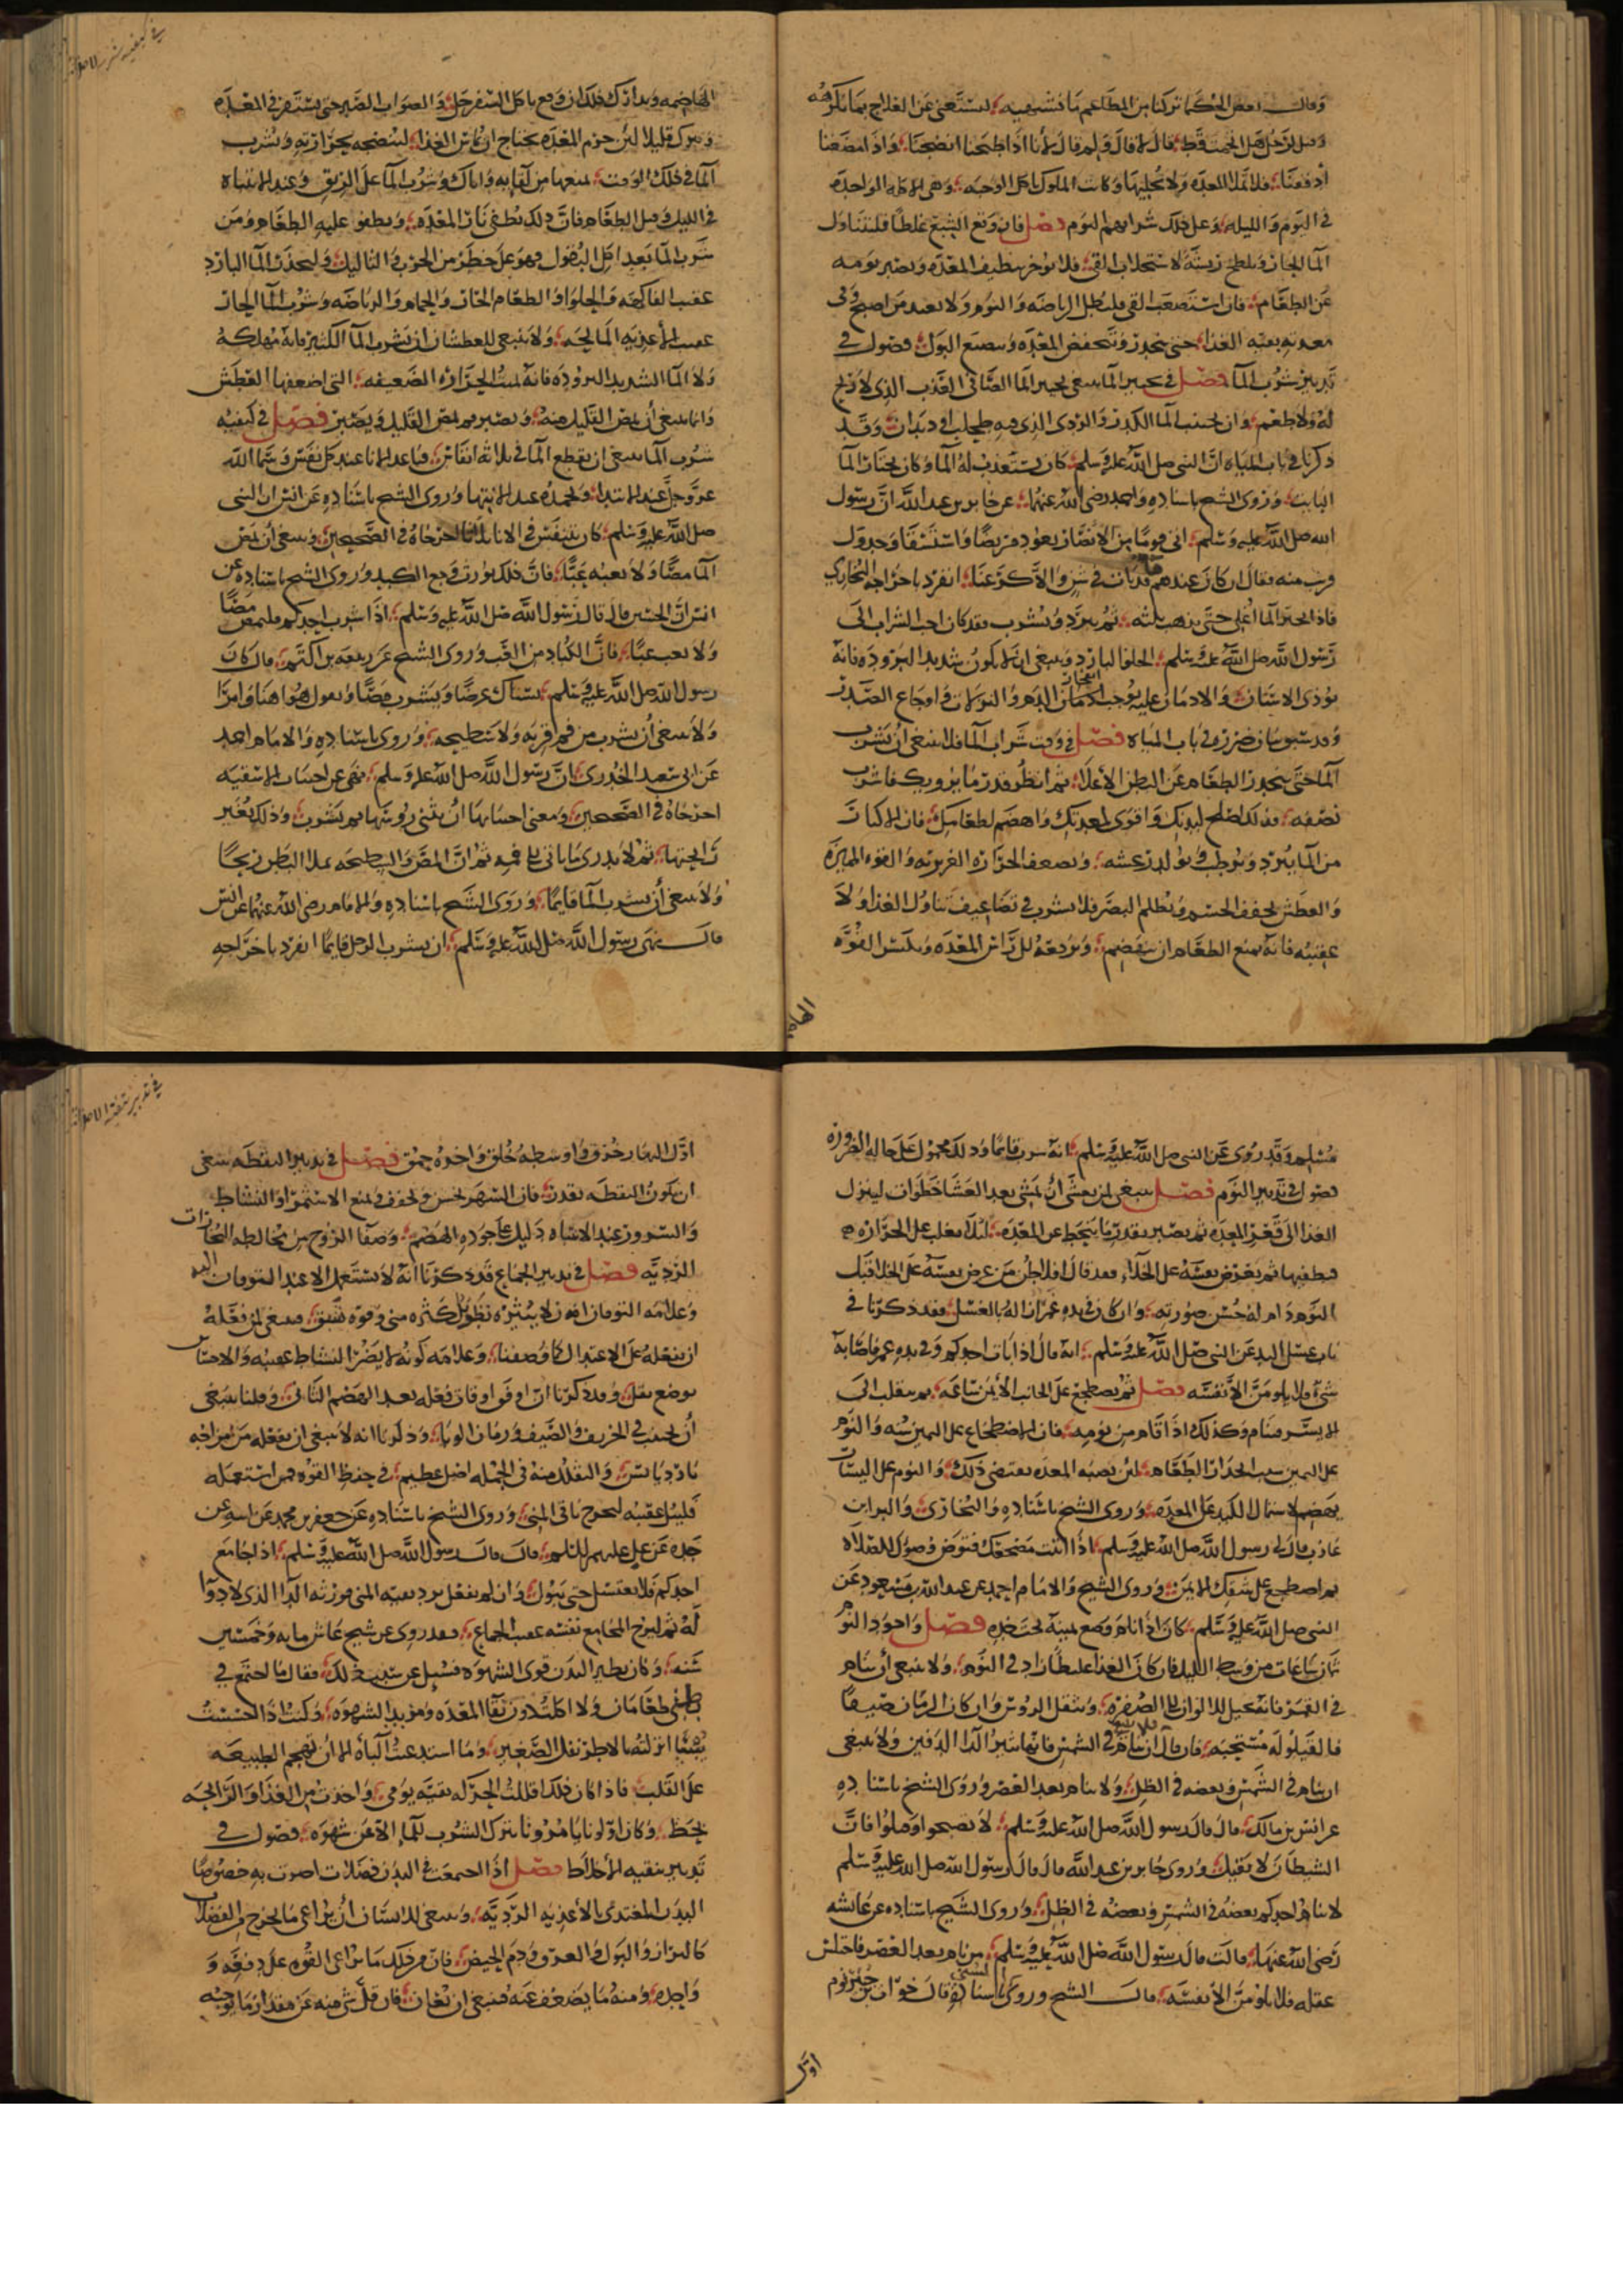 وقال بعض الحكما تركنا من المطاعم ما نشتهيه لنستغني عن العلاج بما نكرهه
وقيل لرجل هل اتخمت قط قال لا قال ولم قال لانا اذا طبخنا انضجنا واذا مضغنا
أدققنا فلا تملا المعدة ولا نخليها وكانت الملوك تاكل الوجبه وهي الاكله الواحده
في اليوم والليله وعلى ذلك شرابهم اليوم فصل فان وقع الشبع غلطا فليتناول
الما الحار ويلطخ ريشة لاستجلاب القي فلا يؤخر تنظيف المعده ويصير يومه
عن الطعام فان استصعب القي فليطل الرياضه والنوم ولا يعيد من اصبح وفي
معدته بقية الغذا حتى ينحدر وتنخفض المعده وينصبغ البول فصول في
تدبير شرب الما فصل في تخيير الما ينبغي تخيير الما الصافي العذب الذي لا ريح
له ولا طعم وان يجتنب الما الكدر والردي الذي فيه طحلب او ديدان وقد
ذكرنا في باب المياه ان النبي صلى الله عليه وسلم كان يستعذب له الما وكان يختار الما
البايت وروى الشيخ باسناده واحمد رضي الله عنهما عن جابر بن عبد الله ان رسول
الله صلى الله عليه وسلم اتى قوما من الانصار يعود مريضا واستسقا وجدول
قريب منه فقال ان كان عندهم ما قد بات في شن والا كرعنا انفرد باخراجه البخاري
فاذا تخير الما اغلي حتى يذهب ثلثه ثم يبرد ويشرب فقد كان احب الشراب الى
رسول الله صلى الله عليه وسلم الحلو البارد وينبغي ان لا يكون شديد البرودة فانه
يوذي الاسنان والادمان عليه يوجب انفجار الدم والنزلات واوجاع الصدر
وقد سبق بيان ضرره في باب المياه فصل في وقت شراب الما فلا ينبغي ان يشرب
الما حتى ينحدر الطعام عن البطن الأعلا ثم انظر قدر ما يرويك فاشرب
نصفه فذلك اصلح لبدنك واقوى لمعدتك واهضم لطعامك فان الاكثار
من الما يبرد ويرطب ويولد رعشه ويضعف الحرارة الغريزيه والقوة المميزة
والعطش يجفف الجسم ويظلم البصر فلا يشرب في تضاعيف تناول الغذا ولا
عقيبه فانه يمنع الطعام ان ينهضم ويردعه الى راس المعده ويكسر القوة
الهاضمه
في كيفية شرب الما
الهاضمه ويدارك ذلك ان وقع باكل السفرجل والصواب الصبر حتى يستقر في المعده
وتبرك قليلا لئن جرم المعده يحتاج ان يماس الغذا لينضجه بحرارته وشرب
الما في ذلك الوقت يمنعها من لقايه واياك وشرب الما على الريق وعند الانتباه
في الليل وقبل الطعام فان ذلك يطفي نار المعده ويطفو عليه الطعام ومن
شرب الما بعد اكل البقول فهو على خطر من الحرب والثاليل وليحذر الما البارد
عقيب الفاكهه والحلوا والطعام الحار والحمام والرياضه وشرب الما الحار
عقيب الأغذيه المالحه ولا ينبغي للعطشان ان يشرب الما الكثير فانه مهلكه
ولا الما الشديد البروده فانه يميت الحرارة الضعيفه التي اضعفها العطش
وانما ينبغي أن يمص القليل منه ويصبر ثم يمص القليل ويصبر فصل في كيفيه
شرب الما ينبغي ان يقطع الما في ثلاثه انفاس يباعد الانا عند كل نفس ويسما الله
عز وجل عند الابتدا ويحمده عند الانتها وروى الشيخ باسناده عن انس ان النبي
صلى الله عليه وسلم كان يتنفس في الانا ثلاثا اخرجاه في الصحيحين وينبغي أن يمص
الما مصا ولا يعبه عبا فان ذلك يورث وجع الكبد وروى الشيخ باسناده عن
انس ان الحسن قال قال رسول الله صلى الله عليه وسلم اذا شرب احدكم فليمص مصا
ولا يعب عبا فان الكباد من العب وروى الشيخ عن ربيعه بن اكثم قال كان
رسول الله صلى الله عليه وسلم يستاك عرضا ويشرب مصا ويقول هو اهنا وامرا
ولا ينبغي أن يشرب من فم قربه ولا سطيحه وروى باسناده والامام احمد
عن ابي سعيد الخدري ان رسول الله صلى الله عليه وسلم نهى عن اختناث الاسقيه
اخرجاه في الصحيحين ومعنى اختناثها ان يثني رؤسها ثم يشرب وذلك يغير
رايحتها ثم لا يدري ما ياتي الى فمه ثم ان المص والسطيحه يملا البطن ريحا
ولا ينبغي أن يشرب الما قايما وروى الشيخ باسناده والامام رضي الله عنهما عن انس
قال نهى رسول الله صلى الله عليه وسلم ان يشرب الرجل قايما انفرد باخراجه
مسلم وقد روي عن النبي صلى الله عليه وسلم انه شرب قايما وذلك محمول على حالة الضرورة
فصول في تدبير النوم فصل ينبغي لمن يعشى أن يمشي بعد العشا خطوات لينزل
الغذا الى قعر المعده ثم يصبر بقدر ما ينحط عن المعده لئلا يغلب على الحراره
فيطفيها ثم يعرض نفسه على الخلا فقد قال افلاطن من عرض نفسه على الخلا قبل
النوم دام له حسن صورته وان كان في يده غمر ازاله بالغسل فقد ذكرنا في
باب غسل اليد عن النبي صلى الله عليه وسلم انه قال اذا بات احدكم وفي يده غمر فاصابه
شي فلا يلومن الا نفسه فصل ثم يضطجع على الجانب الأيمن ساعه ثم ينقلب الى
الايسر فينام وكذلك اذا قام من نومه فان الاضطجاع على اليمين سنه والنوم
على اليمين سبب انحدار الطعام لئن نصبة المعده يقتضي ذلك والنوم على اليسار
يهضم لاشتمال الكبد على المعده وروى الشيخ باسناده والبخاري والبراء بن
عازب قال لي رسول الله صلى الله عليه وسلم اذا اتيت مضجعك فتوض وضوك للصلاه
ثم اضطجع على شقك الايمن وروى الشيخ والامام احمد عن عبد الله بن مسعود عن
النبي صلى الله عليه وسلم كان اذا نام وضع يمينه تحت خده فصل واجود النوم
ثمان ساعات من وسط الليل فان كان الغذا غليظا زاد في النوم ولا ينبغي أن ينام
في القمر فانه يحيل الالوان الى الصفره ويثقل الروس وان كان الزمان صيفا
فالقيلوله مستحبه فان قال أن ينام فلا ينام في الشمس فانها تثير الدا الدفين ولا ينبغي
ان ينام في الشمس وبعضه في الظل ولا ينام بعد العصر وروى الشيخ باسناده
عن انس بن مالك قال قال رسول الله صلى الله عليه وسلم لا تصبحوا وصلوا فان
الشيطان لا يقيل وروى جابر بن عبد الله قال قال رسول الله صلى الله عليه وسلم
لا ينام احدكم بعضه في الشمس وبعضه في الظل وروى الشيخ باسناده عن عايشه
رضي الله عنها قالت قال رسول الله صلى الله عليه وسلم من نام بعد العصر فاختلس
عقله فلا يلومن الا نفسه قال الشيخ وروى الشيخ باسناده قال خوات بن جبير نوم
اول
في تدبير تنقية الاخلاط
اول النهار خرق واوسطه خلق واخره حمق فصل في تدبير اليقظه ينبغي
ان يكون اليقظه بقدر فان السهر يحبس ويجفف ويمنع الاستمرا والنشاط
والسرور عند الانتباه دليل على جودة الهضم وصفا الروح من مخالطه البخارات
الرديه فصل في تدبير الجماع قد ذكرنا انه لا يستعمل الا عند التوقان اليه
وعلامه التوقان ان يكون لا يثيره نظر بل كثره مني وقوة شبق فينبغي لمن فعله
ان يفعله على الاعتدال كما وصفنا وعلامه كونه لا يضر النشاط عقيبه والاحساس
بوضع ثقل وقد ذكرنا ان اوفق اوقات فعله بعد الهضم الثاني وقلنا ينبغي
أن يجتنب في الخريف والصيف وزمان الوبا وذكرنا انه لا ينبغي ان يفعله من مزاجه
بارد يابس والتقلل منه في الجمله اصل عظيم في حفظ القوة فمن استعمله
فليبل عقيبه ليخرج باقي المني وروى الشيخ باسناده عن جعفر بن محمد عن ابيه عن
جده عن علي عليهم السلم قال قال رسول الله صلى الله عليه وسلم اذا جامع
احدكم فلا يغتسل حتى يبول وان لم يفعل تردد بقية المني فورثه الدا الذي لا دوا
له ثم ليرح المجامع نفسه عقب الجماع فقد روي عن شيخ عاش مايه وخمسين
سنه وكان نظير البدن قوي الشهوه فسئل عن سبب ذلك فقال ما اجتمع في
بطني طعامان ولا اكلت دون نقا المعده ومزيد الشهوه وكنت اذا احسست
شيئا انزلته ... ثقل الصغير وما استدعيت الباه الا ان تهجم الطبيعه
على القلب فاذا كان ذلك اقللت الحركه بقية يومي واخذت من الغذا والراحه
بحظ وكان اولونا يامرونا بترك الشرب للما الا عن شهوه فصول في
تدبير تنقيه الأخلاط فصل اذا اجتمعت في البدن فضلات اضرت به خصوصا
البدن المغتذي بالأغذيه الرديه وينبغي للانسان أن يراعي ما يخرج من الفضلات
كالبراز والبول والعرق ودم الحيض فان من ذلك ما يراعي القوه على دفعه و
واجده ومنه ما يضعف عنه فينبغي ان يعان فان قل شي منه عن مقدار ما يوجبه